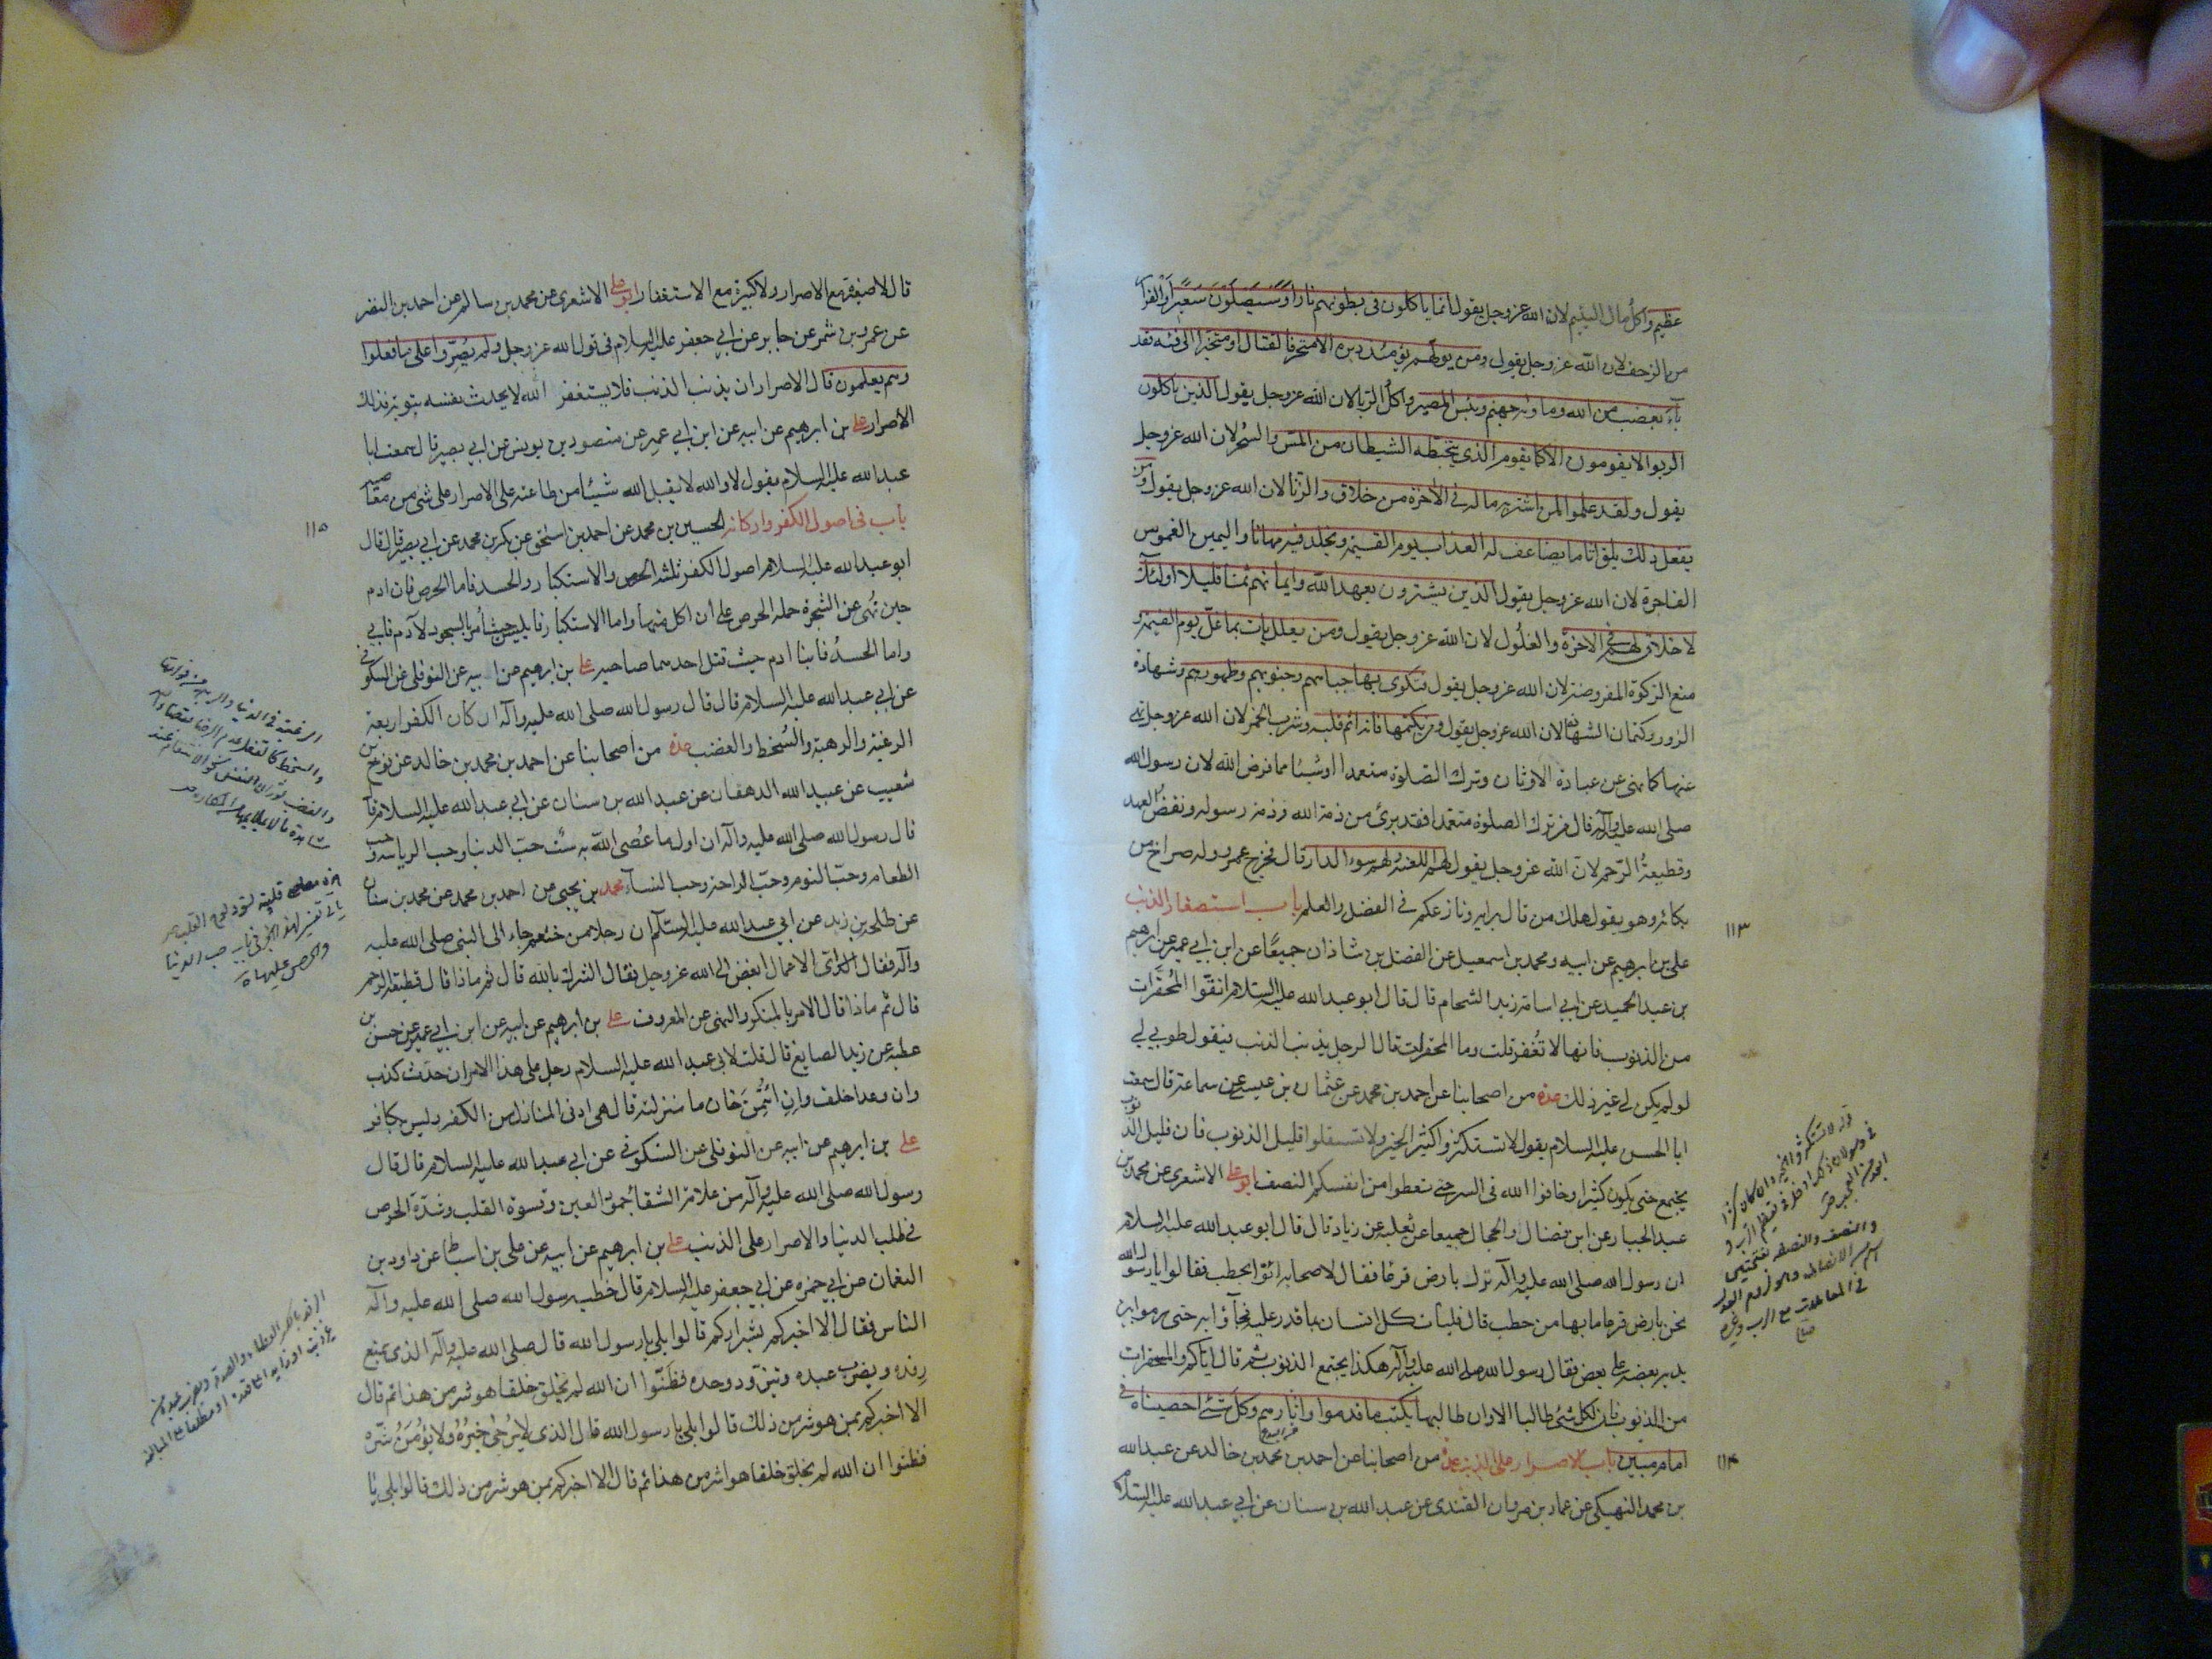 عظيم واكل مال اليتيم لان الله عز وجل يقول انما ياكلون فى بطونهم نارا وسيصلون سعيرا والفرا
من الزحف لان الله عز وجل يقول ومن يولهم يومئذ دبره الا متحرفا لقتال او متحيزا الى فئه فقد
باء بغضب من الله وماويه جهنم وبئس المصير واكل الربا لان الله عز وجل يقول الذين ياكلون
الربوا لا يقومون الا كما يقوم الذى يتخبطه الشيطان من المس والسحر لان الله عز وجل
يقول ولقد علموا لمن اشتريه ماله فى الاخرة من خلاق والزنا لان الله عز وجل يقول ومن
يفعل ذلك يلق اثاما يضاعف له العذاب يوم القيمة ويخلد فيه مهانا واليمين الغموس
الفاجرة لان الله عز وجل يقول الذين يشترون بعهد الله وايمانهم ثمنا قليلا اولئك
لا خلاق لهم فى الاخرة والغلول لان الله عز وجل يقول ومن يغلل يات بما غل يوم القيمة و
منع الزكوة المفروضة لان الله عز وجل يقول فتكوى بها جباههم وجنوبهم وظهورهم وشهادة
الزور وكتمان الشهادة لان الله عز وجل يقول ومن يكتمها فانه اثم قلبه وشرب الخمر لان الله عز وجل نهى
عنها كما نهى عن عبادة الاوثان وترك الصلوة متعمدا او شيئا مما فرض الله لان رسول الله
صلى الله عليه وآله قال من ترك الصلوة متعمدا فقد برئ من ذمة الله وذمة رسوله ونقض العهد
وقطيعة الرحم لان الله عز وجل يقول لهم اللعنة ولهم سوء الدار قال فخرج عمرو وله صراخ من
بكائه وهو يقول هلك من قال برايه ونازعكم فى الفضل والعلم باب استصغار الذنب
١١٣
على بن ابرهيم عن ابيه ومحمد بن اسمعيل عن الفضل بن شاذان جميعا عن ابن ابي عمير عن ابرهيم
بن عبد الحميد عن ابي اسامة زيد الشحام قال قال ابو عبد الله عليه السلام اتقوا المحقرات
من الذنوب فانها لا تغفر قلت وما المحقرات قال الرجل يذنب الذنب فيقول طوبي لي
لو لم يكن لي غير ذلك عدة من اصحابنا عن احمد بن محمد عن عثمان بن عيسى عن سماعة قال سمعت
ابا الحسن عليه السلام يقول لا تستكثروا كثير الخير ولا تستقلوا قليل الذنوب فان قليل الذنوب
يجتمع حتى يكون كثيرا وخافوا الله فى السر حتى تعطوا من انفسكم النصف ابو على الاشعرى عن محمد بن
عبد الجبار عن ابن فضال والحجال جميعا عن ثعلبة عن زياد قال قال ابو عبد الله عليه السلام
ان رسول الله صلى الله عليه وآله نزل بارض قرعا فقال لاصحابه ائتوا بحطب فقالوا يا رسول الله
نحن بارض قرعا ما بها من حطب قال فليات كل انسان بما قدر عليه فجاؤا به حتى رموا بين
يديه بعضه على بعض فقال رسول الله صلى الله عليه وآله هكذا يجتمع الذنوب ثم قال اياكم والمحقرات
من الذنوب فان لكل شئ طالبا الا وان طالبها يكتب ما قدموا واثارهم وكل شئ احصيناه فى
امام مبين باب الاصرار على الذنب عدة من اصحابنا عن احمد بن محمد بن خالد عن عبد الله
١١٤
بن محمد النهيكى عن عمار بن مروان القندى عن عبد الله بن سنان عن ابي عبد الله عليه السلام
قال لا صغيرة مع الاصرار ولا كبيرة مع الاستغفار ابو على الاشعرى عن محمد بن سالم عن احمد بن النضر
عن عمرو بن شمر عن جابر عن ابي جعفر عليه السلام فى قول الله عز وجل ولم يصروا على ما فعلوا
وهم يعلمون قال الاصرار ان يذنب الذنب فلا يستغفر الله لا يحدث نفسه بتوبة فذلك
الاصرار على بن ابرهيم عن ابيه عن ابن ابي عمير عن منصور بن يونس عن ابي بصير قال سمعت ابا
عبد الله عليه السلام يقول لا والله لا يقبل الله شيئا من طاعته على الاصرار على شئ من معاصيه
باب فى اصول الكفر واركانه الحسين بن محمد عن احمد بن اسحق عن بكر بن محمد عن ابي بصير قال قال
١١٥
ابو عبد الله عليه السلام اصول الكفر ثلثه الحرص والاستكبار والحسد فاما الحرص فان ادم
حين نهى عن الشجرة حمله الحرص على ان اكل منها واما الاستكبار فابليس حيث امر بالسجود لآدم فابي
واما الحسد فابنا ادم حيث قتل احدهما صاحبه على بن ابرهيم عن ابيه عن النوفلى عن السكونى
عن ابي عبد الله عليه السلام قال قال رسول الله صلى الله عليه وآله اركان الكفر اربعة
الرغبة والرهبة والسخط والغضب عدة من اصحابنا عن احمد بن محمد بن خالد عن نوح بن
شعيب عن عبيد الله الدهقان عن عبد الله بن سنان عن ابي عبد الله عليه السلام قال
قال رسول الله صلى الله عليه وآله ان اول ما عصى الله به ست حب الدنيا وحب الرياسة وحب
الطعام وحب النوم وحب الراحة وحب النساء محمد بن يحيى عن احمد بن محمد عن محمد بن سنان
عن طلحة بن زيد عن ابي عبد الله عليه السلام ان رجلا من خثعم جاء الى النبى صلى الله عليه
وآله فقال اى الاعمال ابغض الى الله عز وجل فقال الشرك بالله قال ثم ماذا قال قطيعة الرحم
قال ثم ماذا قال الامر بالمنكر والنهى عن المعروف على بن ابرهيم عن ابيه عن ابن ابي عمير عن حسن بن
عطية عن زيد الصايغ قال قلت لابى عبد الله عليه السلام رجل على هذا الامر ان حدث كذب
وان وعد اخلف وان ائتمن خان ما منزلته قال هى ادنى المنازل من الكفر وليس بكافر
على بن ابرهيم عن ابيه عن النوفلى عن السكونى عن ابي عبد الله عليه السلام قال قال
رسول الله صلى الله عليه وآله من علامة الشقا جمود العين وقسوة القلب وشدة الحرص
فى طلب الدنيا والاصرار على الذنب على بن ابرهيم عن ابيه عن على بن اسباط عن داود بن
النعمان عن ابي حمزه عن ابي جعفر عليه السلام قال خطب رسول الله صلى الله عليه وآله
الناس فقال الا اخبركم بشراركم قالوا بلى يا رسول الله قال صلى الله عليه وآله الذى يمنع
رفده ويضرب عبده ويتزود وحده فظنوا ان الله لم يخلق خلقا هو شر من هذا ثم قال
الا اخبركم بمن هو شر من ذلك قالوا بلى يا رسول الله قال الذى لا يرجى خيره ولا يؤمن شره
فظنوا ان الله لم يخلق خلقا هو شر من هذا ثم قال الا اخبركم بمن هو شر من ذلك قالوا بلى يا